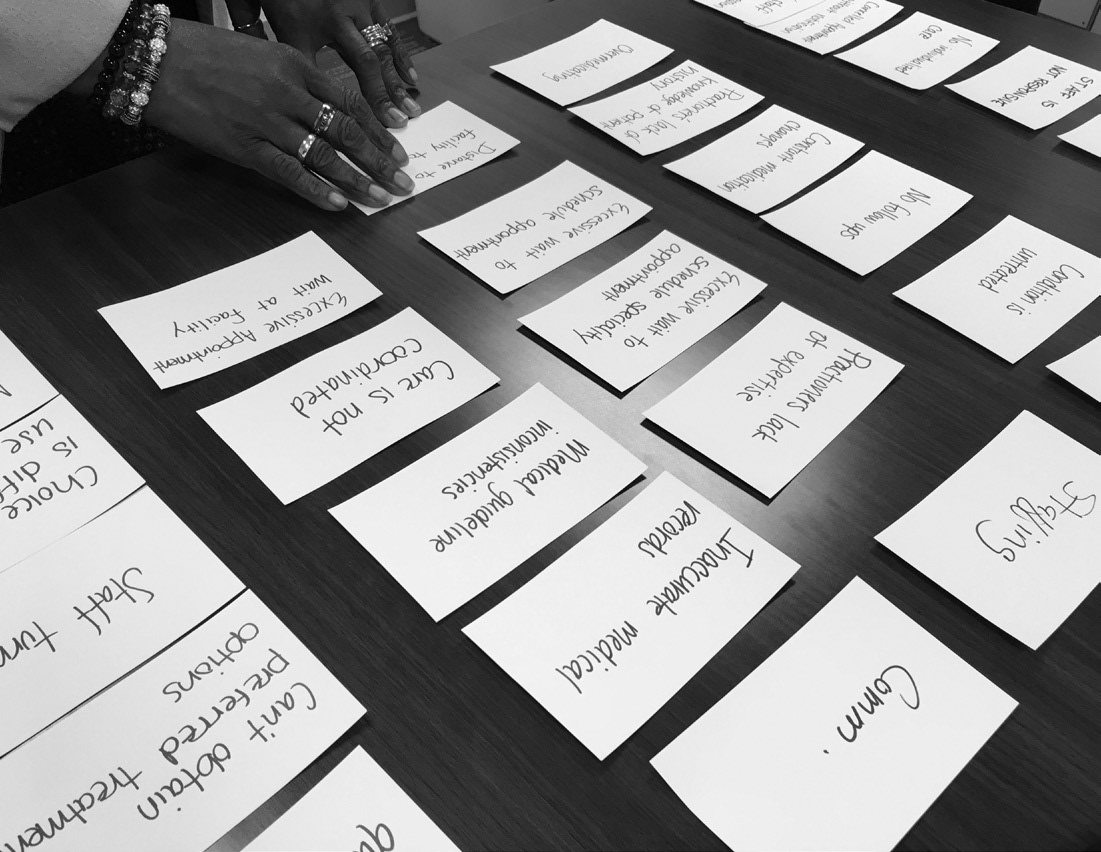 Cancelled Appointment
without notification
No individualized
care
STAFF IS
NOT RESPONSIVE
Overmedicating
Practioners' lack of
knowledge of patient
history
Constant medication
changes
No follow ups
Condition is
untreated
Distance to
facility to
Excessive wait to
schedule appointment
Excessive wait to
schedule speciality
appointment
Practioners lack
of expertise
Staffing
Excessive Appointment
wait at facility
Care is not
coordinated
Medical guideline
inconsistencies
Inaccurate medical
records
Comm.
Choice
is diff
use
Staff turn
Can't obtain
preferred treatmen
options
qu